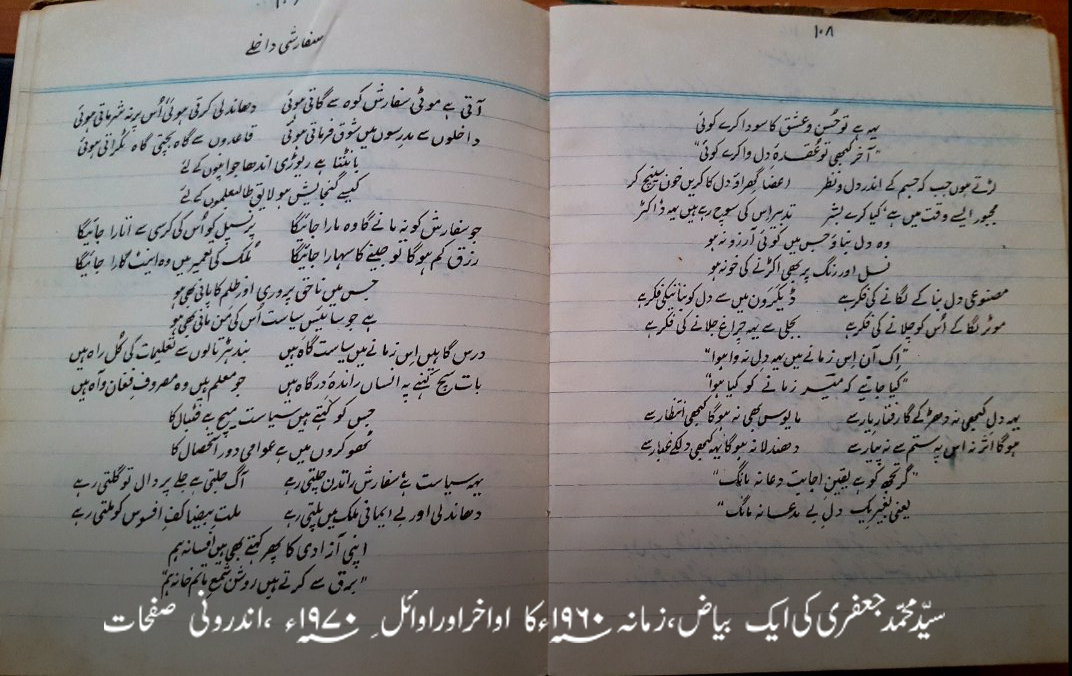 ۱۰۸
یہ ہے تو حُسن و عشق کا سودا کرے کوئی
"آخر کبھی تو عُقدۂ دل وا کرے کوئی"
لڑتے ہوں جب کہ جسم کے اندر دل و نظر اعضا گھراؤ دل کا کریں خون سینچ کر
مجبور ایسے وقت میں ہے کیا کرے بشر تدبیر اس کی سوچ رہے ہیں یہ ڈاکٹر
وہ دل بناؤ جس میں کوئی آرزو نہ ہو
نسل اور رنگ پر بھی اکڑنے کی خو نہ ہو
مصنوعی دل بنا کے لگانے کی فکر ہے ڈیکرون میں سے دل کو بنانیکی فکر ہے
موٹر لگا کے اُس کو چلانے کی فکر ہے بجلی سے یہ چراغ جلانے کی فکر ہے
"اِک آن اِس زمانے میں یہ دل نہ وا ہوا"
"کیا جانیے کہ میر زمانے کو کیا ہوا"
یہ دل کبھی نہ دھڑکے گا رفتارِ یار سے مایوس بھی نہ ہوگا کبھی انتظار سے
ہوگا اثر نہ اس پہ ستم سے نہ پیار سے دھندلا نہ ہوگا یہ کبھی دل کے غبار سے
"گر تجھ کو ہے یقینِ اجابت دعا نہ مانگ"
"یعنی بغیر یک دلِ بے مدعا نہ مانگ"
سفارشی داخلے
آتی ہے موٹی سفارش کوہ سے گاتی ہوئی دھاندلی کرتی ہوئی اُس پر نہ شرماتی ہوئی
داخلوں سے مدرسوں میں شوق فرماتی ہوئی قاعدوں سے گاہ بچتی گاہ ٹکراتی ہوئی
بانٹتا ہے ریوڑی اندھا جوانوں کے لئے
کیسے گنجایش ہو لایق طالبعلموں کے لئے
جو سفارش کو نہ مانے گا وہ مارا جائیگا پرنسپل کو اُس کی کرسی سے اتارا جائیگا
رزق کم ہوگا تو جینے کا سہارا جائیگا مُلک کی تعمیر میں وہ اینٹ گارا جائیگا
جس میں ناحق پروری اور ظلم کا پانی بھی ہو
ہے جو سائیس سیاست اُس کی من مانی بھی ہو
درس گاہیں اس زمانے میں سیاست گاہ ہیں بند ہڑتالوں سے تعلیمات کی کُل راہ ہیں
بات سچ کہتے پہ انساں راندۂ درگاہ ہیں جو معلم ہیں وہ مصروفِ فغان و آہ ہیں
جس کو کہتے ہیں سیاست میچ ہے فٹبال کا
ٹھوکروں میں ہے عوامی دور استحصال کا
یہ سیاست ہے سفارش رات دن چلتی رہے آگ جلتی ہے جلے پر دال تو گلتی رہے
دھاندلی اور بے ایمانی ملک میں پلتی رہے ملتِ بیضا کفِ افسوس کو ملتی رہے
اپنی آزادی کا پھر کہتے بھی ہیں افسانہ ہم
"برق سے کرتے ہیں روشن شمعِ ماتم خانہ ہم"
سیّد محمّد جعفری کی ایک بیاض، زمانہ ۱۹۶۰ء کا اواخر اور اوائلِ ۱۹۷۰ء ،اندرونی صفحات